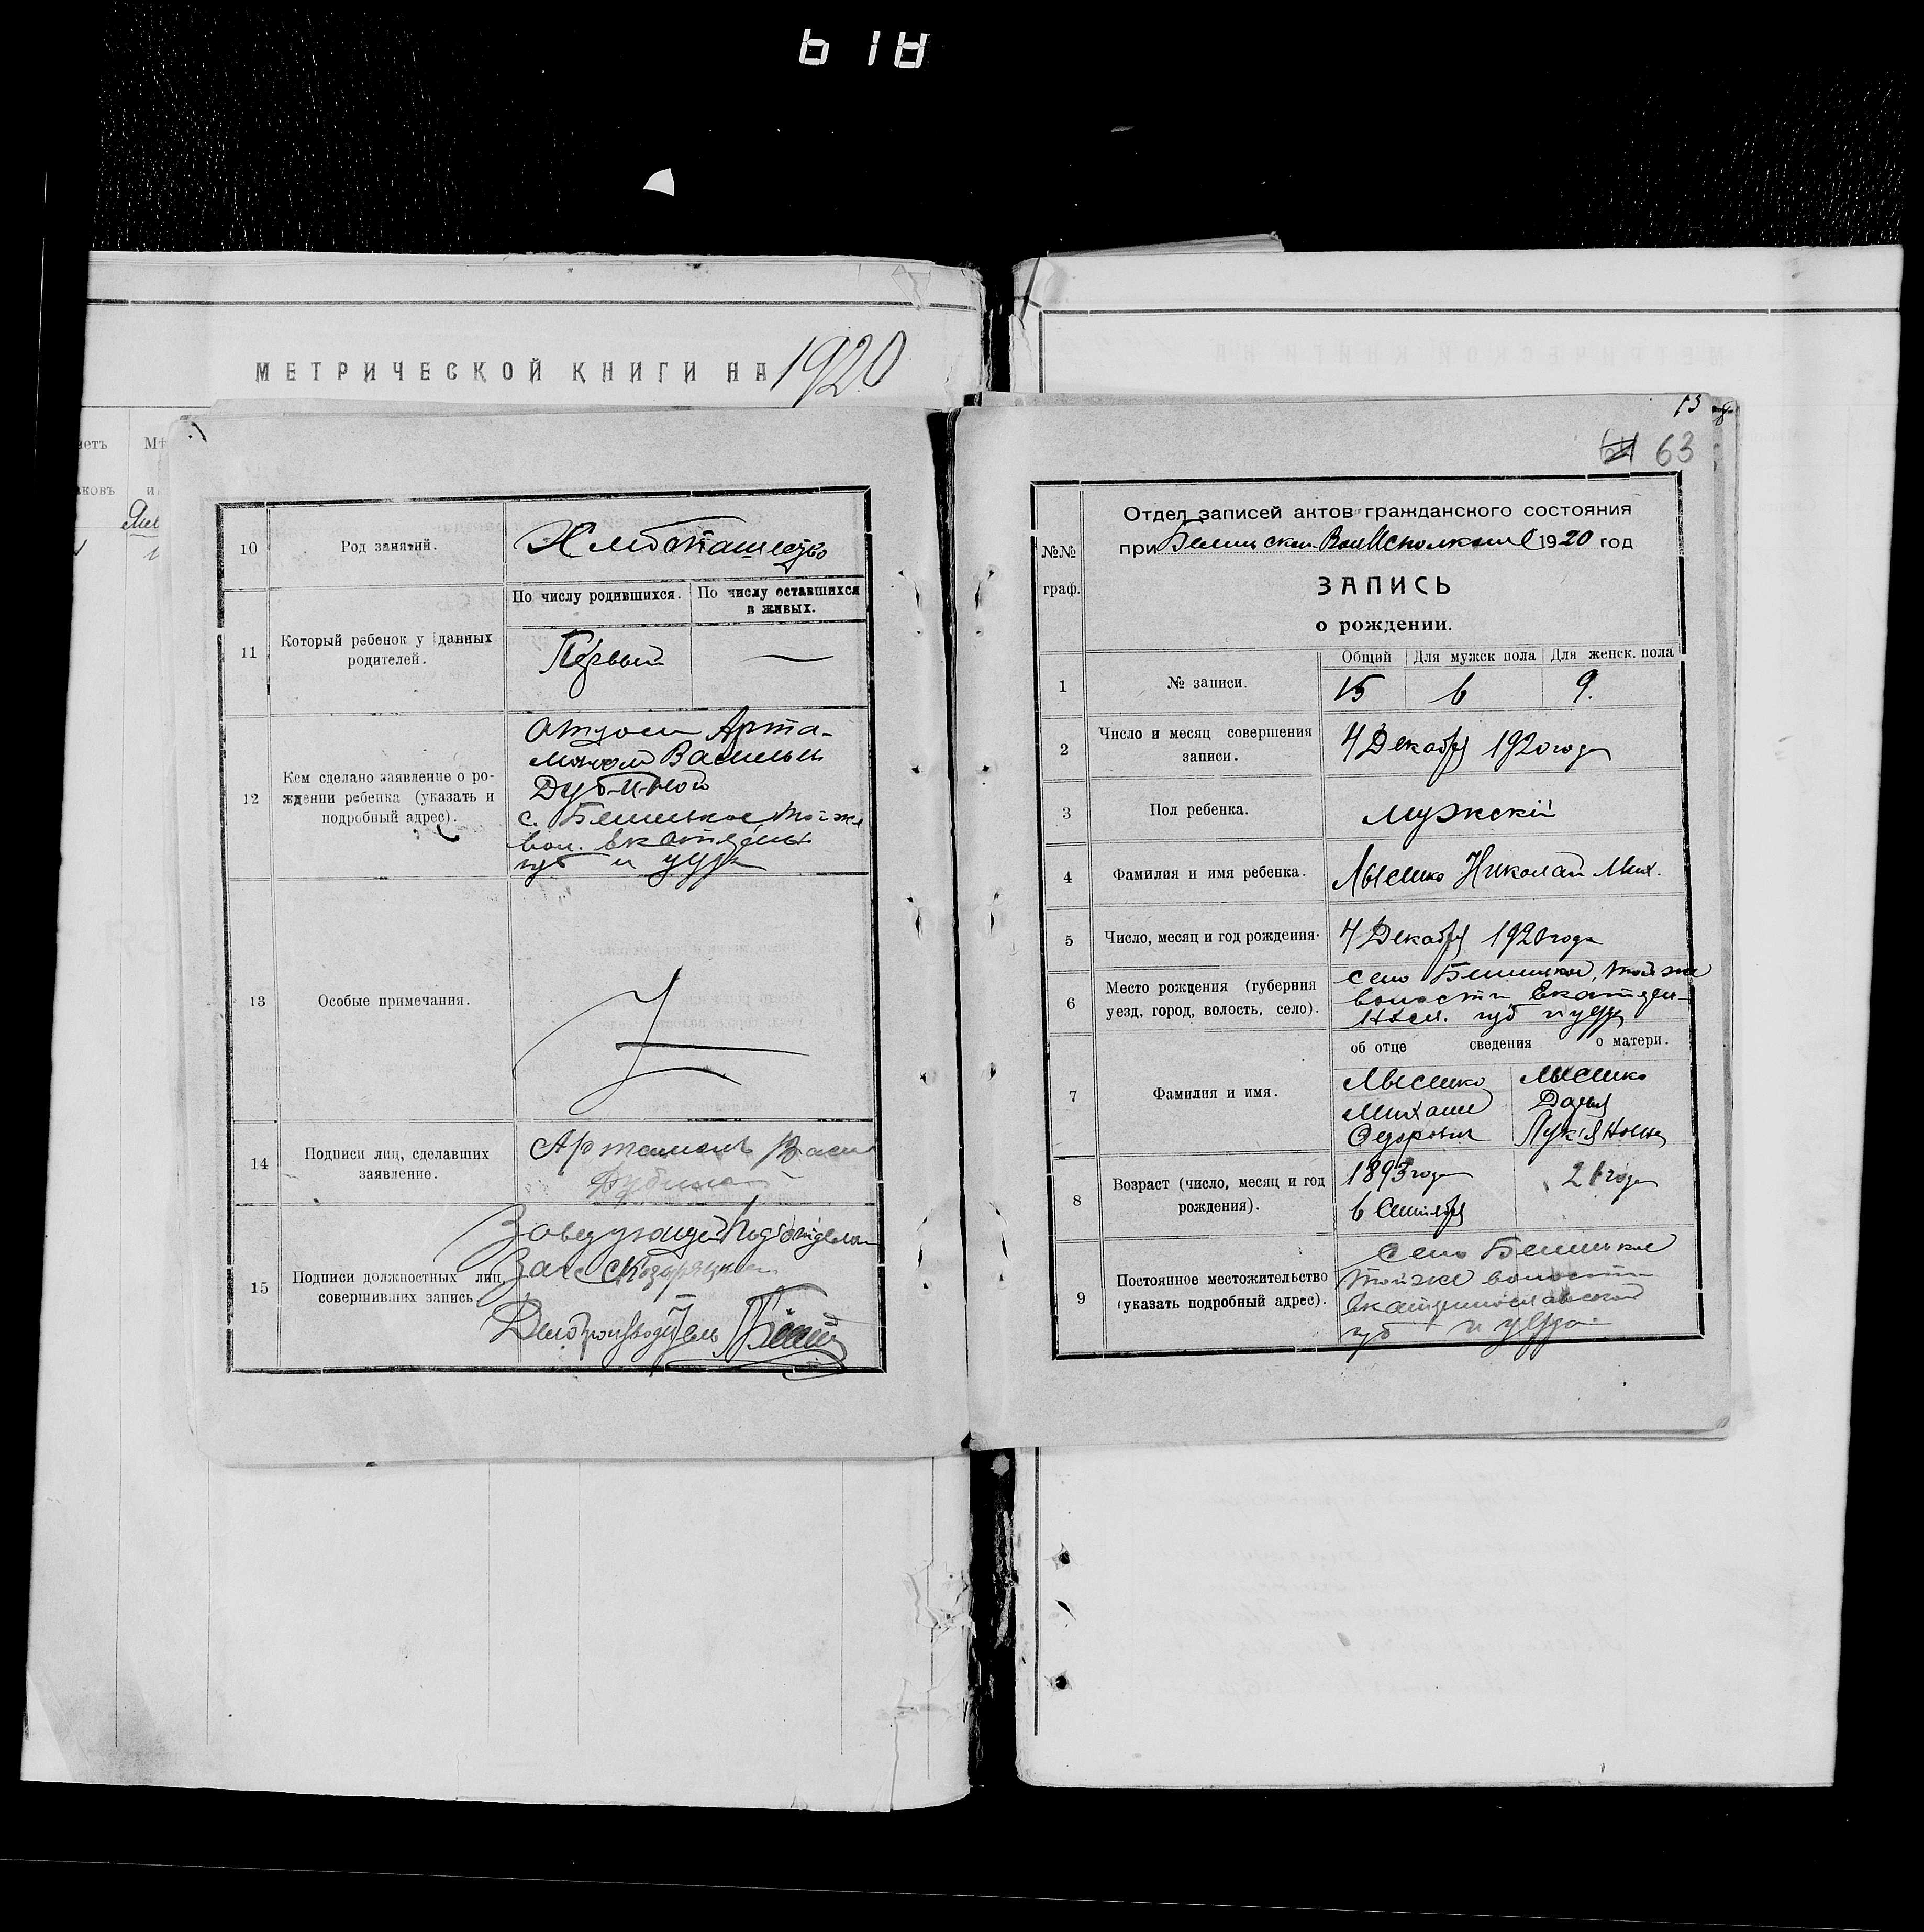 МЕТРИЧЕСКОЙ КНИГИ НА 1920
10
Род занятий.
Хлебопашество
11
Который ребенок у данных
родителей.
По числу родившихся.
По числу оставшихся
в живых.
Первый
—
12
Кем сделано заявление о ро-
ждении ребенка (указать и
подробный адрес).
отцом Арта-
моном Васильев
Дубиной
вол.
губ и уезда
13
Особые примечания.
14
Подписи лиц, сделавших
заявление.
Артамон Васил
15
Подписи должностных лиц,
совершивших запись
Заведующей Подотделом
Загс
Делопроизводитель
13
64 63
№№
граф.
Отдел записей актов гражданского состояния
при ВолИсполкоме 1920 год
ЗАПИСЬ
о рождении.
Общий
Для мужск пола
Для женск. пола
1
№ записи.
15
6
9.
2
Число и месяц совершения
записи.
4 Декабря 1920 года
3
Пол ребенка.
Мужскій
4
Фамилия и имя ребенка.
Лысенко Николай Мих.
5
Число, месяц и год рождения.
4 Декабря 1920 года
6
Место рождения (губерния
уезд, город, волость, село).
село той же
волости Екатери-
носл. губ и уезда
об отце сведения о матери.
7
Фамилия и имя.
Лысенко
Михаил
Федорович
Лысенко
Дария
Лукіяновна
8
Возраст (число, месяц и год
рождения).
1893 года
6 Сентября
21 года
9
Постоянное местожительство
(указать подробный адрес).
Село
той же волости
Екатеринославской
губ и уезда